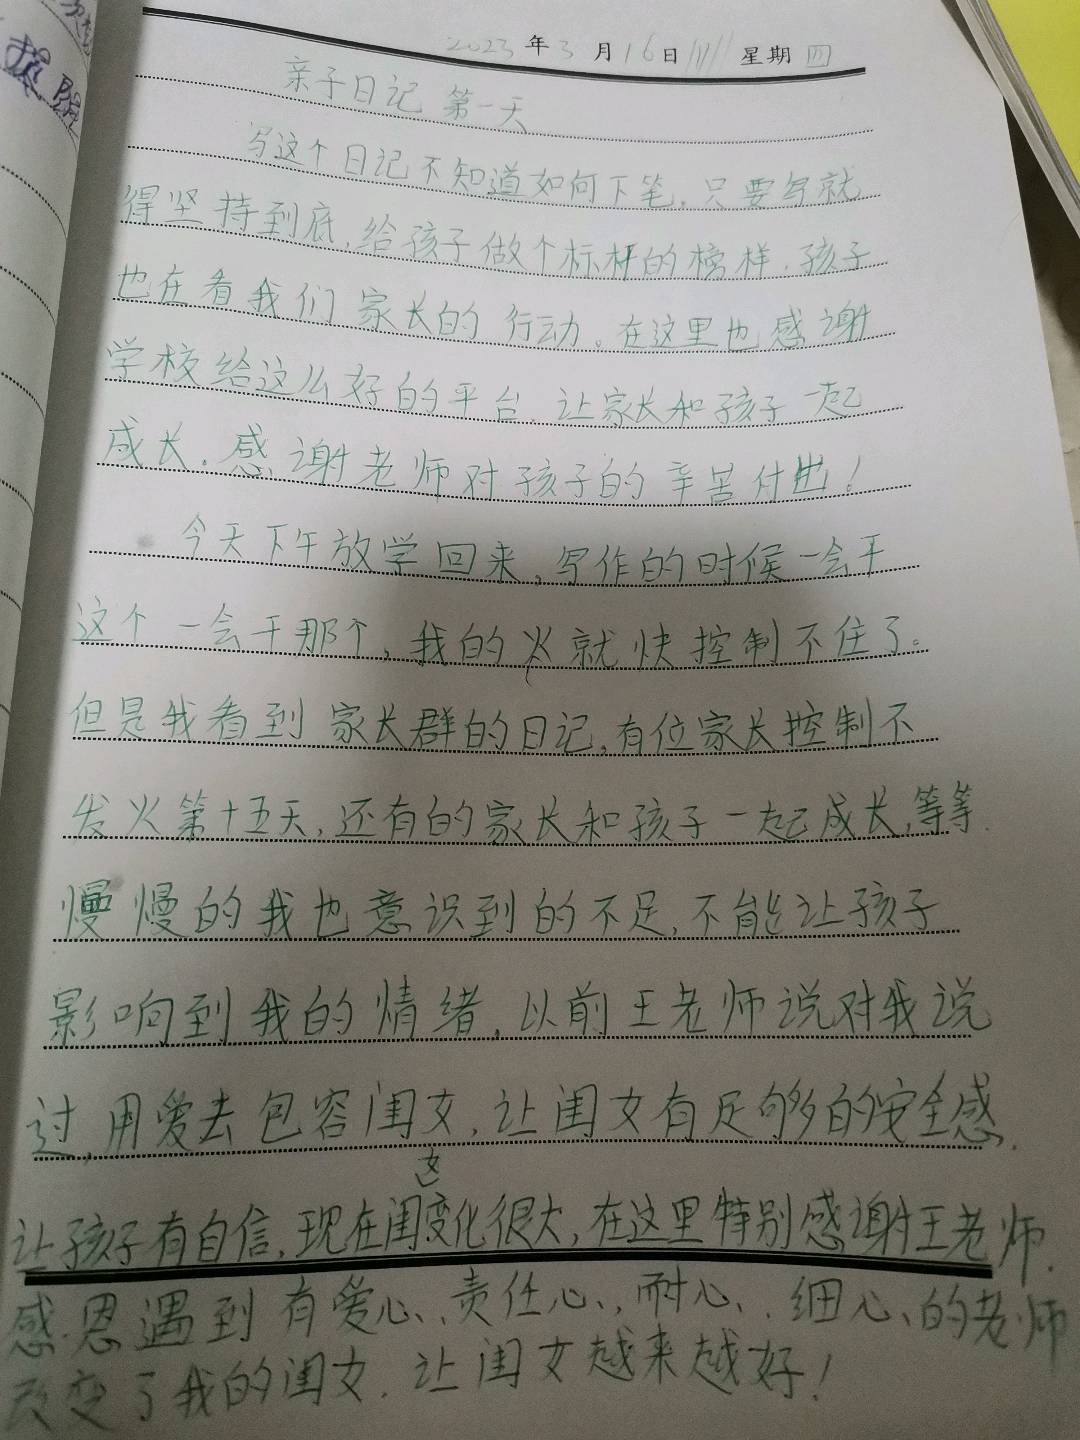 2023年3月16日 星期四
亲子日记 第一天
写这个日记不知道如何下笔,只要写就
得坚持到底,给孩子做个标杆的榜样,孩子
也在看我们家长的行动。在这里也感谢
学校给这么好的平台,让家长和孩子一起
成长。感谢老师对孩子的辛苦付出!
今天下午放学回来,写作的时候一会干
这个一会干那个,我的火就快控制不住了。
但是我看到家长群的日记,有位家长控制不
发火第十五天,还有的家长和孩子一起成长,等等.
慢慢的我也意识到的不足,不能让孩子
影响到我的情绪,以前王老师说对我说
过,用爱去包容闺女,让闺女有足够的安全感.
让孩子有自信,现在闺女变化很大,在这里特别感谢王老师.
感恩遇到有爱心、责任心、耐心、细心、的老师
改变了我的闺女.让闺女越来越好!